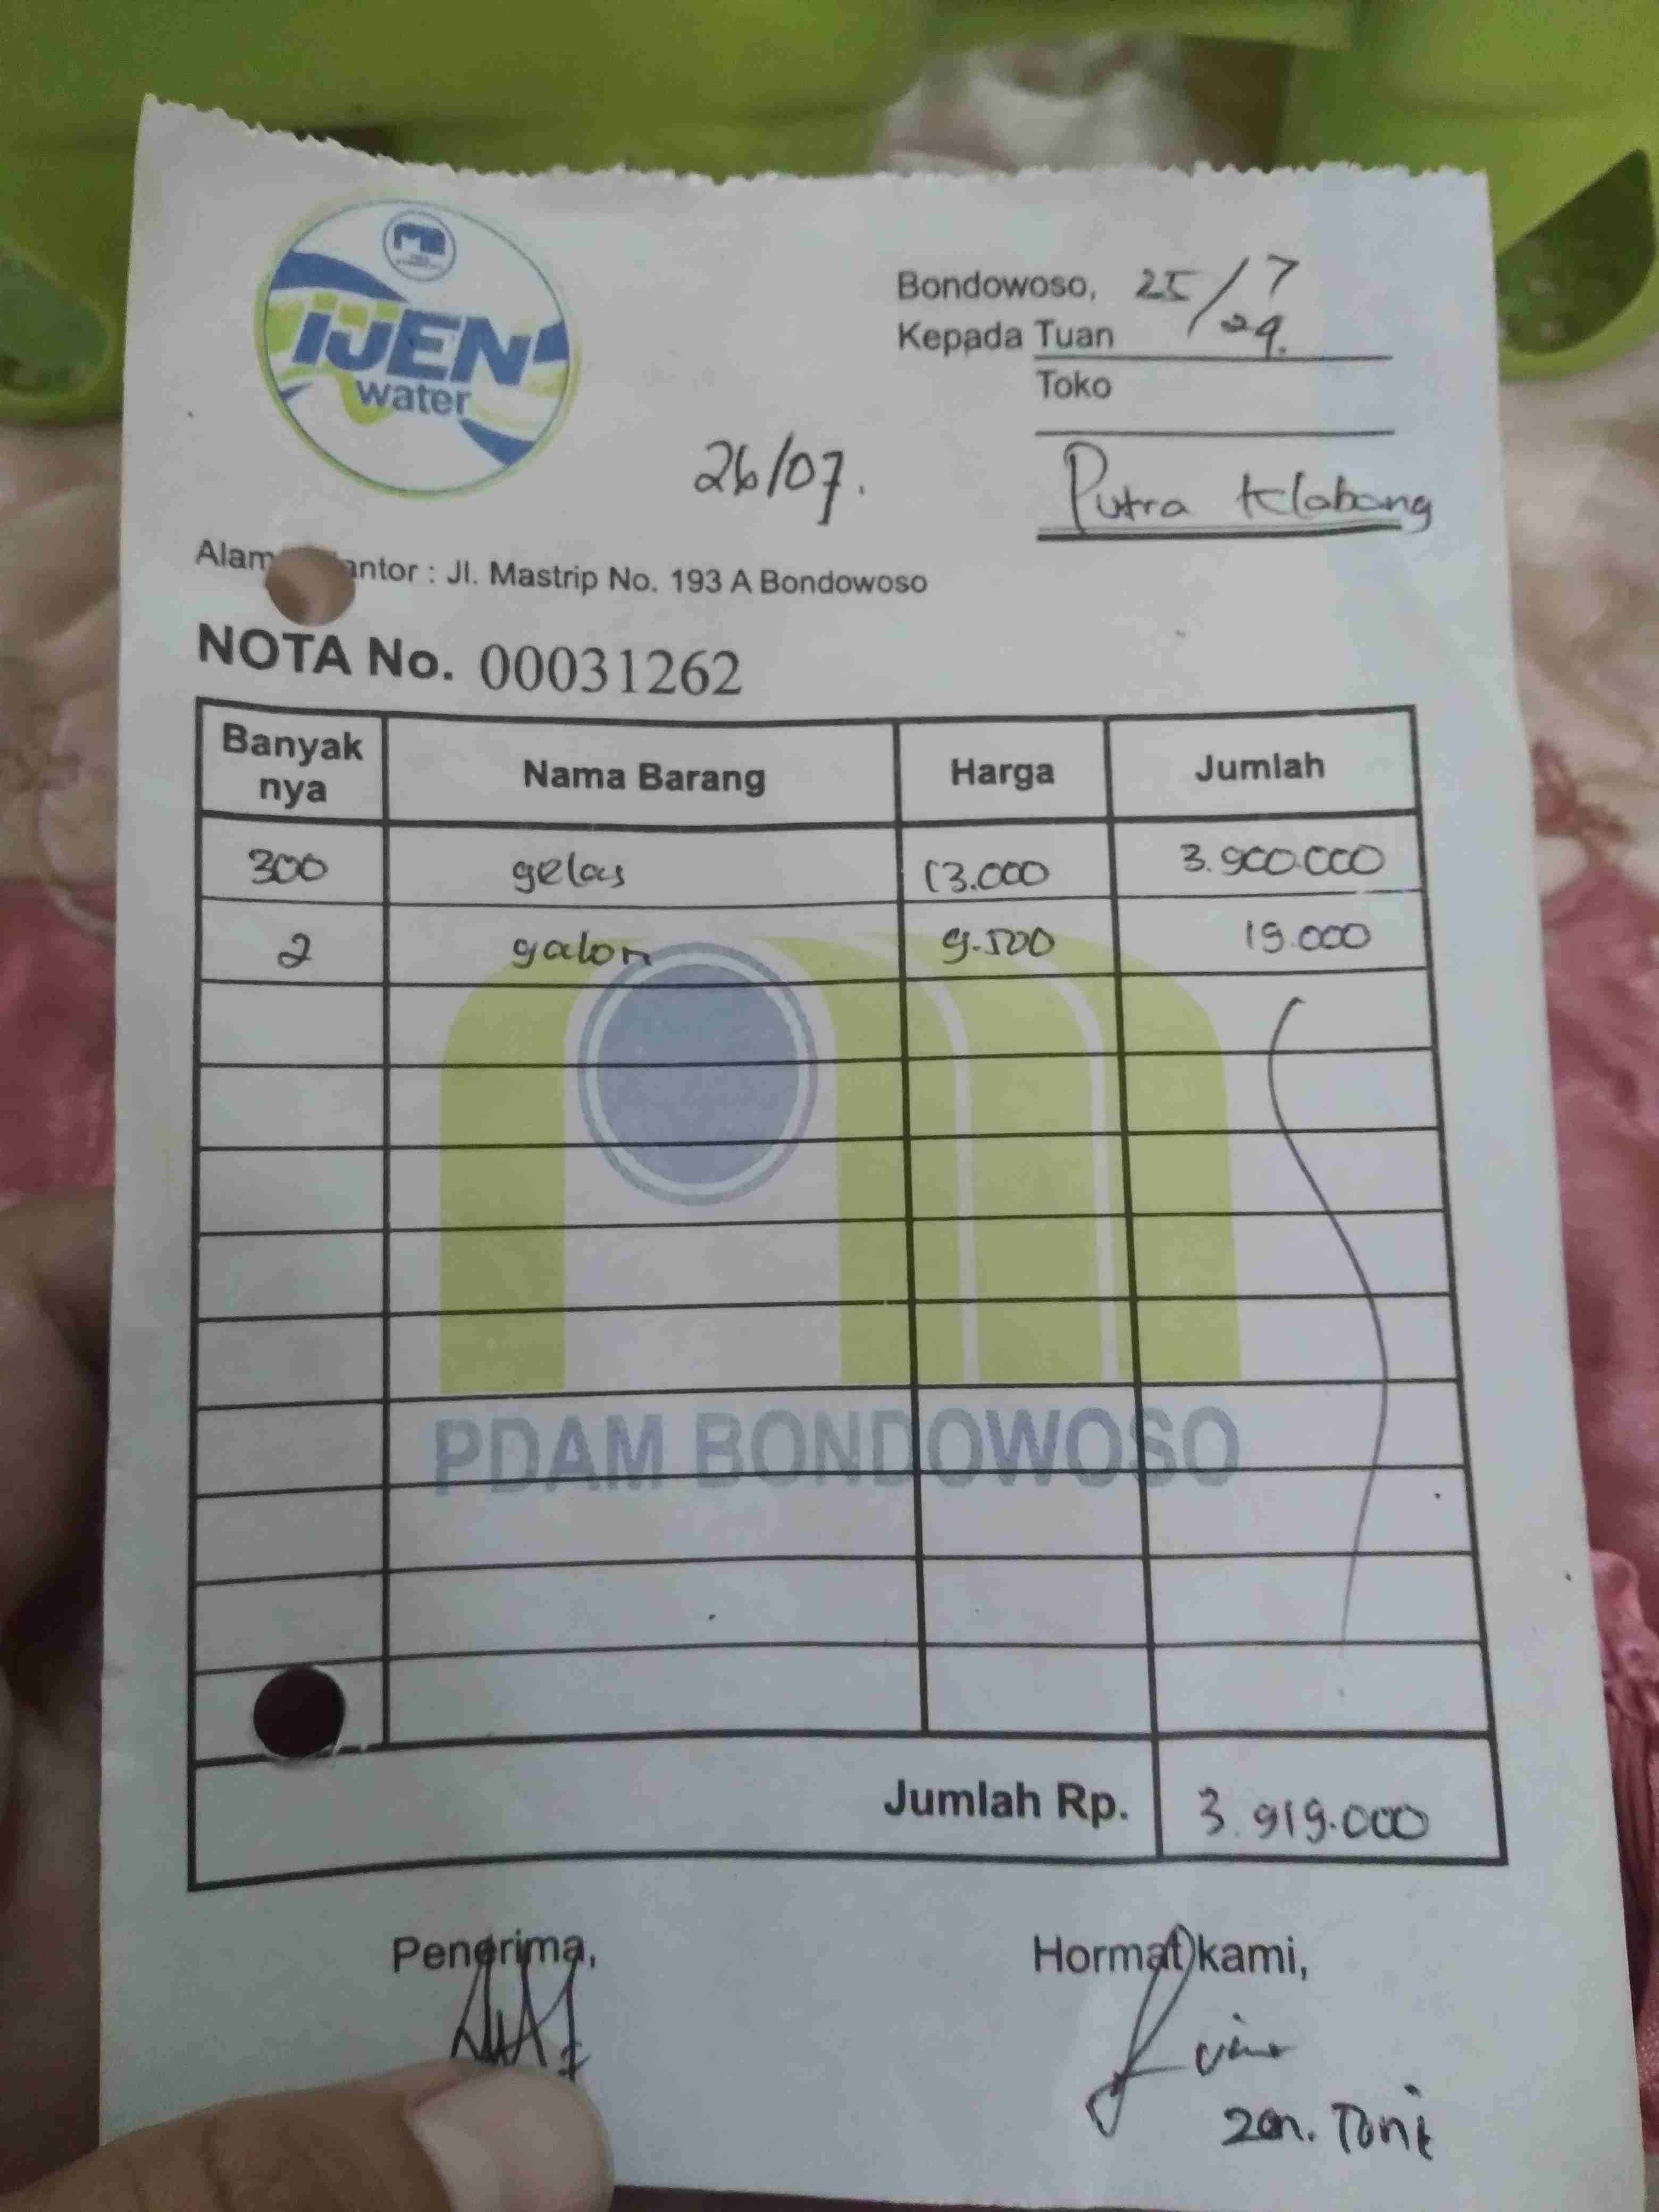 IJEN
water
Bondowoso, 25/7
24.
Kepada Tuan
Toko
26/07.
Putra Klabang
Alam antor : Jl. Mastrip No. 193 A Bondowoso
NOTA No. 00031262
Banyak nya Nama Barang Harga Jumlah
300 gelas 13.000 3.900.000
2 galon 9.500 19.000
PDAM BONDOWOSO
Jumlah Rp. 3.919.000
Penerima, Hormat kami,
Toni